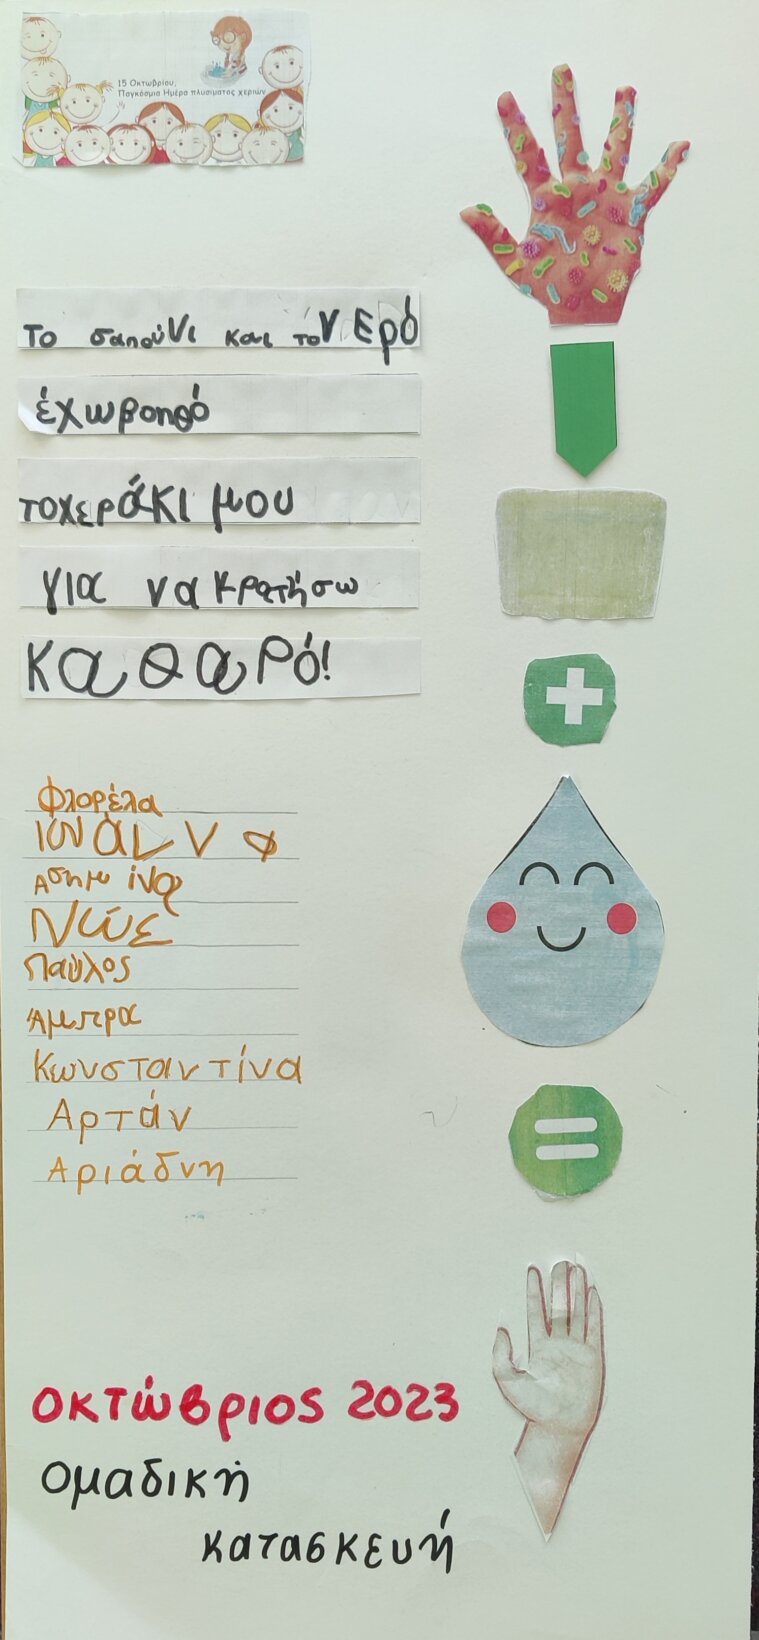 15 Οκτωβρίου,
Παγκόσμια Ημέρα πλυσίματος χεριών
Το σαπούνι και το νερό
έχω βοηθό
το χεράκι μου
για να κρατήσω
καθαρό!
Φλορέλα
Ασημίνα
Νώε
Παύλος
Άμπρα
Κωνσταντίνα
Αρτάν
Αριάδνη
Οκτώβριος 2023
Ομαδική
κατασκευή